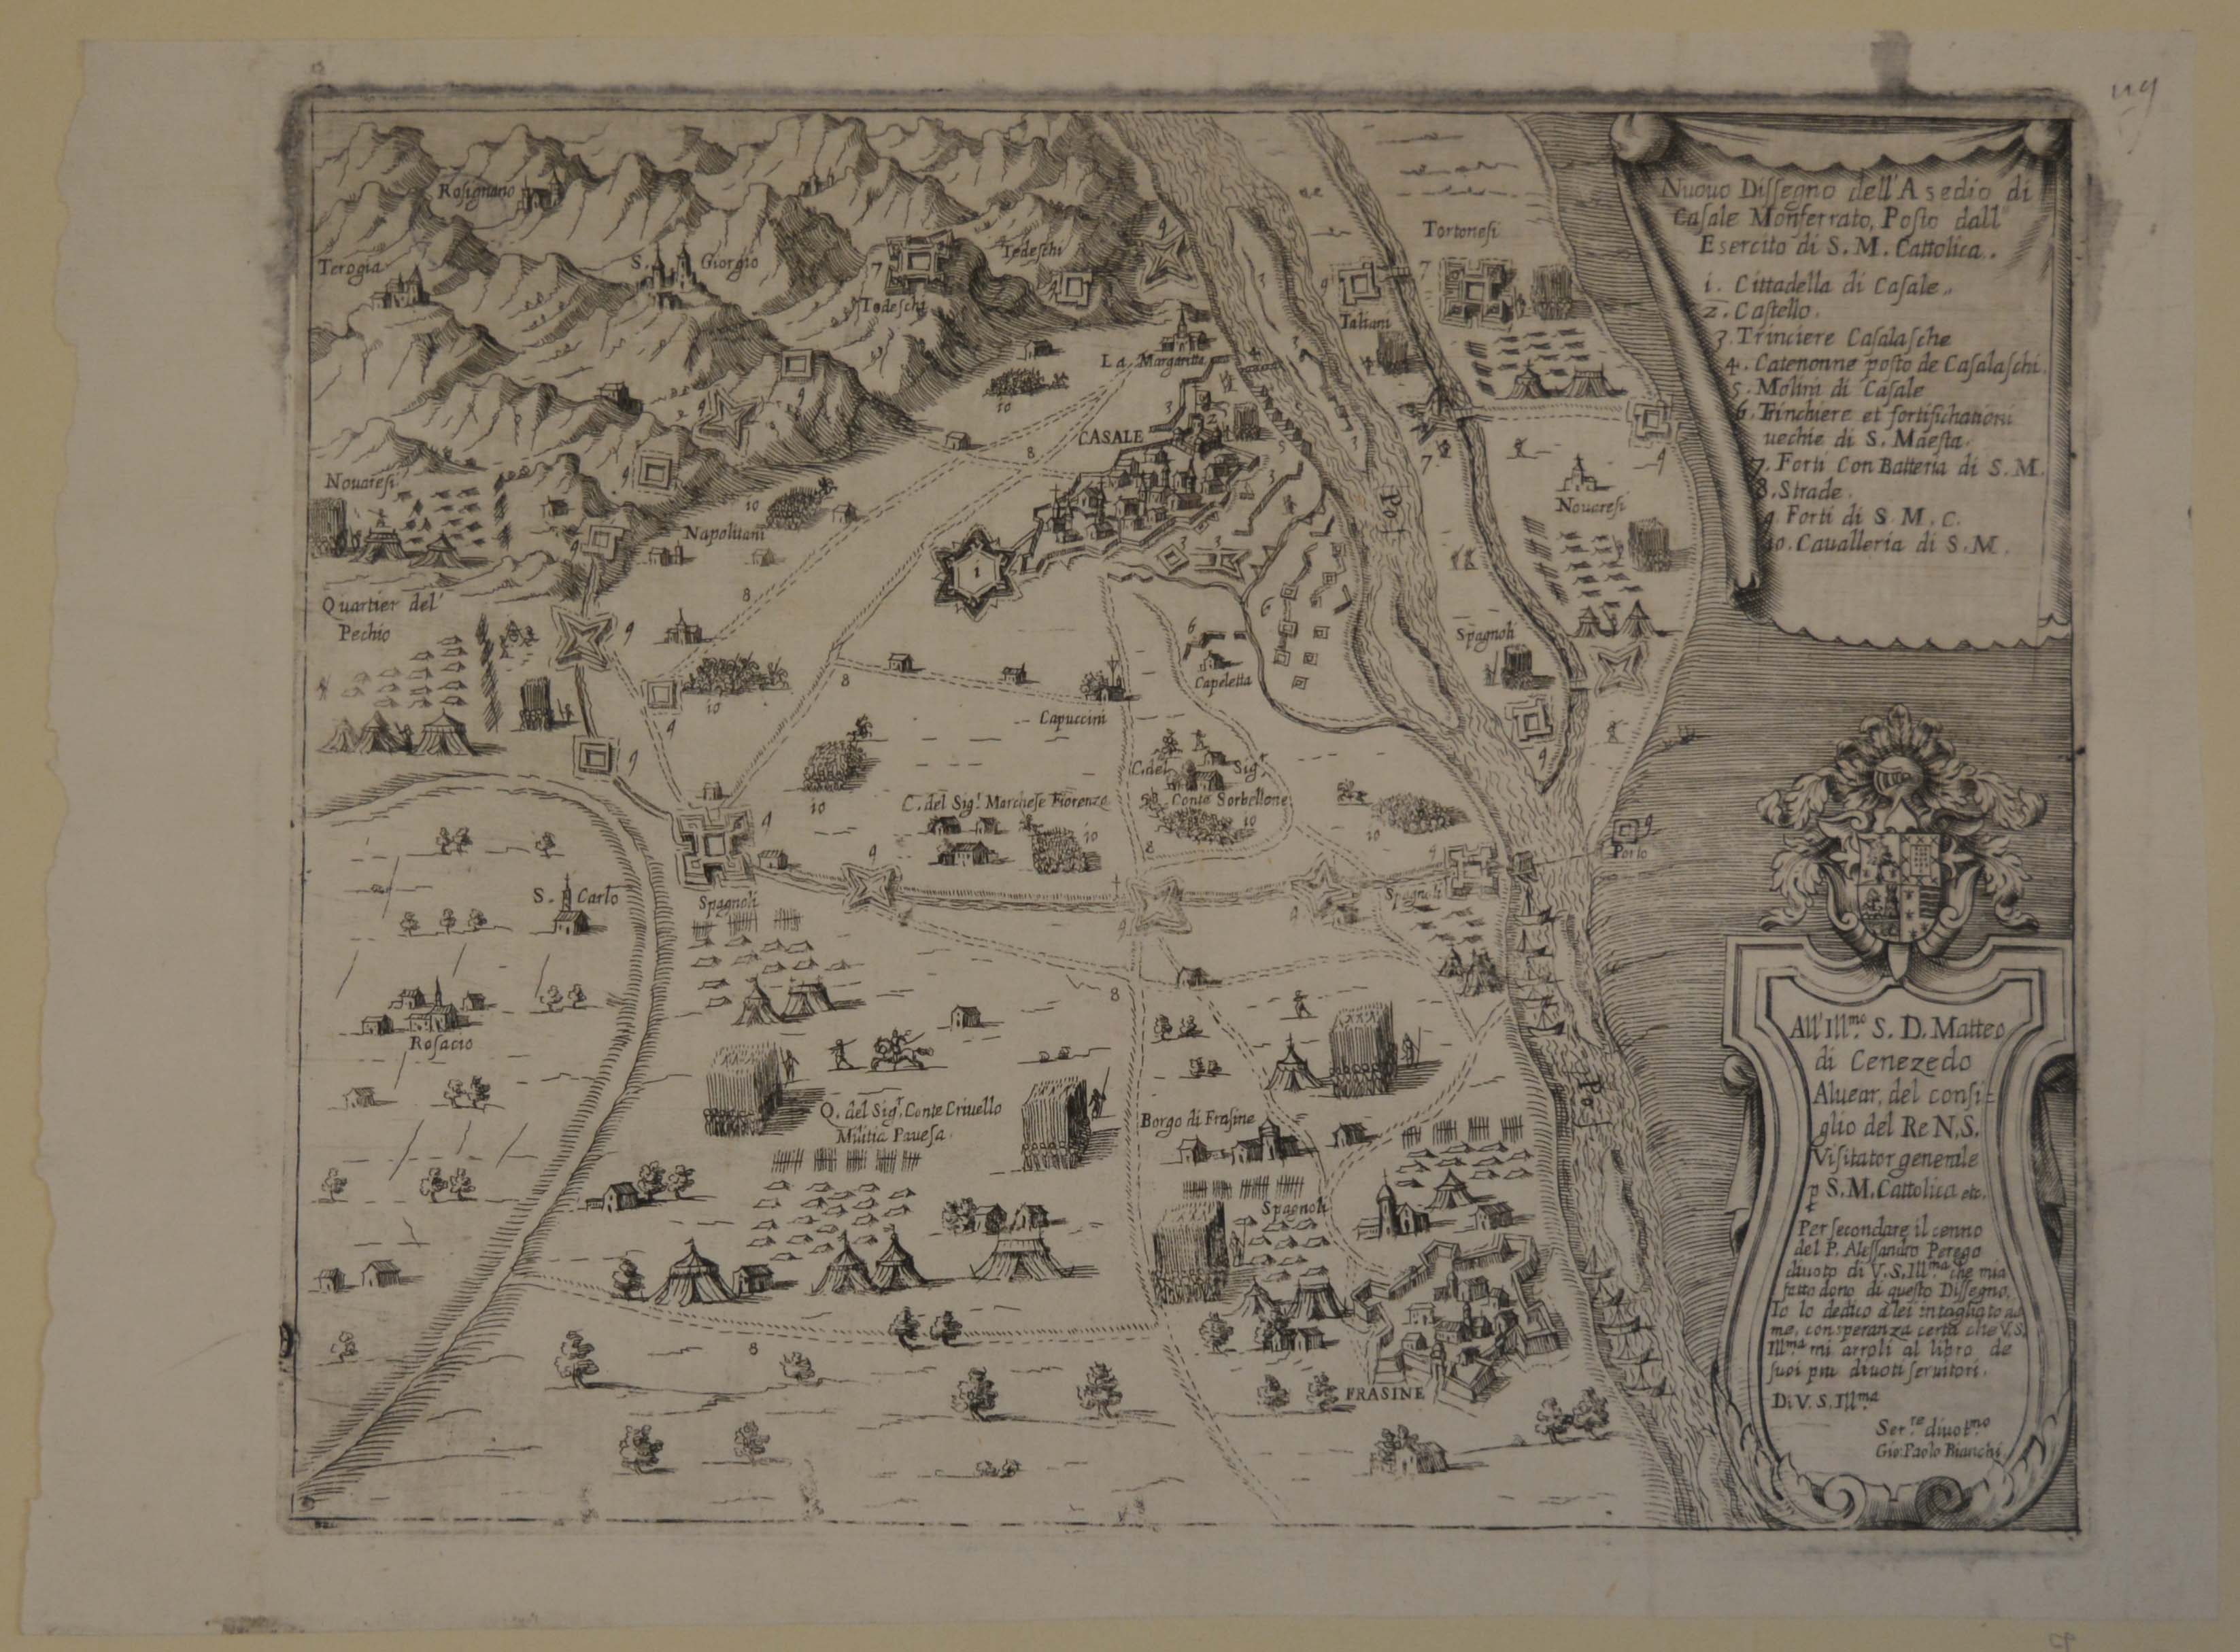 119
Nuouo Disſegno dell'Asedio di
Caſale Monferrato, Poſto dall
Esercito di S. M. Cattolica.
1. Cittadella di Caſale.
2. Caſtello.
3. Trinciere Caſalaſche
4. Catenonne poſto de Caſalaſchi.
5. Molini di Caſale
6. Trinchiere et fortifichationi
uechie di S. Maeſta.
7. Forti Con Batteria di S. M.
8. Strade.
9. Forti di S. M. C.
10. Caualleria di S. M.
Roſignano
Terogia
S. Giorgio
Tedeſchi
Tedeſchi
7
9
9
Tortoneſi
7
Taliani
La Margaritta
10
CASALE
8
3
2
5
3
3
Po f.
7
9
Nouareſi
Nouareſi
9
9
9
9
10
Napolitani
1
3
3
8
Quartier del'
Pechio
9
6
6
Capeletta
Spagnoli
9
10
9
8
Capuccini
9
10
C. del Sig.r Marcheſe Fiorenza
10
C. del Sig.r
Conte Sorbellone
10
10
8
9
Porto
9
9
9
9
9
Spagnoli
Spagnoli
S. Carlo
Roſacio
8
Q. del Sig.r Conte Criuello
Militia Paueſa.
Borgo di Fraſine
Po f.
Spagnoli
8
FRASINE
All'Ill.mo S. D. Matteo
di Cenezedo
Aluear, del conſi-
glio del Re N. S.
Viſitator generale
p S. M. Cattolica etc.
Per ſecondare il cenno
del P. Aleſſandro Perego
diuoto di V. S. Ill.ma che mia
fatto dono di queſto Diſſegno,
Io lo dedico a lei intagliato da
me, con speranza certa che V. S.
Ill.ma mi arroli al libro de
ſuoi piu diuoti ſeruitori.
Di V. S. Ill.ma
Ser.re diuot.mo
Gio: Paolo Bianchi